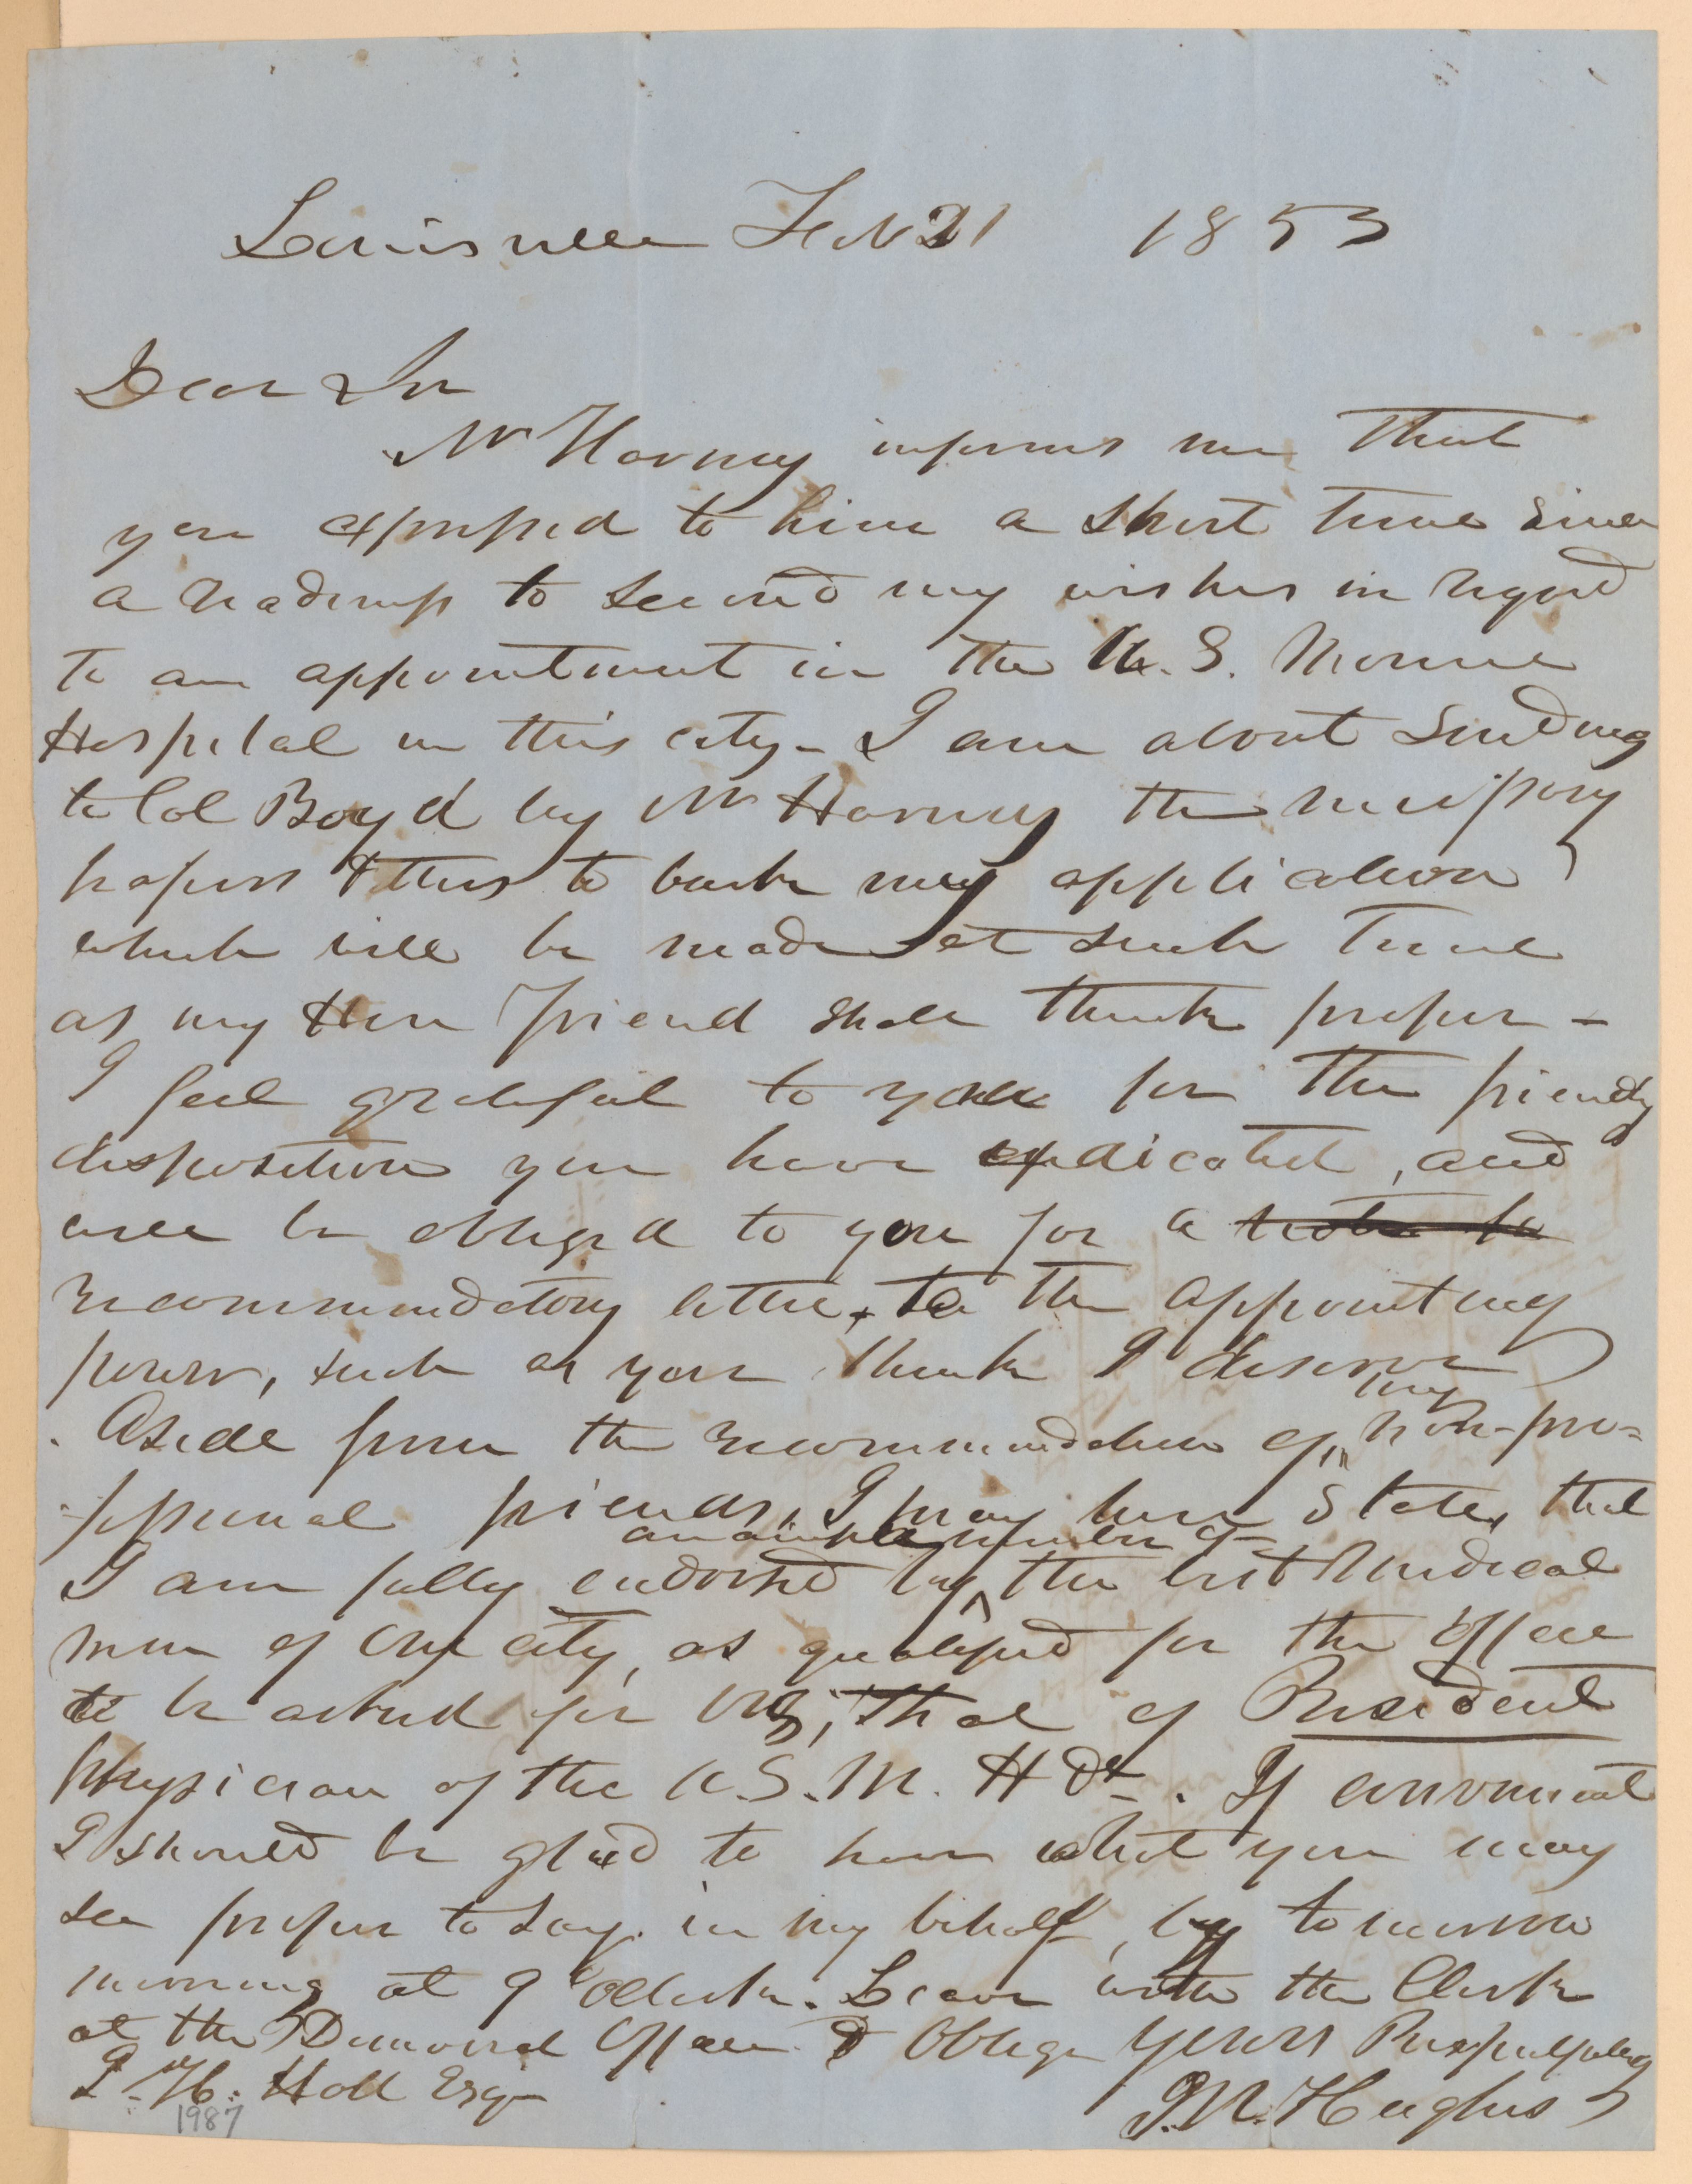 Louisville Feb 21 1853
Dear Sir
Mr Harney informs me that
you expressed to him a short time since
a readiness to second my wishes in regard
to an appointment in the U.S. Marine
Hospital in this city - I am about sending
to Col Boyd by Mr Harney the necessary
papers & thus to back my application
which will be made at such time
as my Hon friend shall think proper -
I feel grateful to you for the friendly
disposition you have indicated, and
will be obliged to you for a
recommendatory letter, to the appointing
power, such as you think I deserve
my
Aside from the recommendation of non-pro=
fessional friends, I may here state, that
an ample number of
I am fully endorsed by the best Medical
men of our city, as qualified for the office
to be asked for viz; that of Resident
Physician of the U.S.M. H. If convenient
I should be glad to have what you may
see proper to say in my behalf, by tomorrow
morning at 9 oclock. Leave with the Clerk
at the Democrat Office & Oblige Yours Respectfully
Holt Esq J.N. Hughes
1987